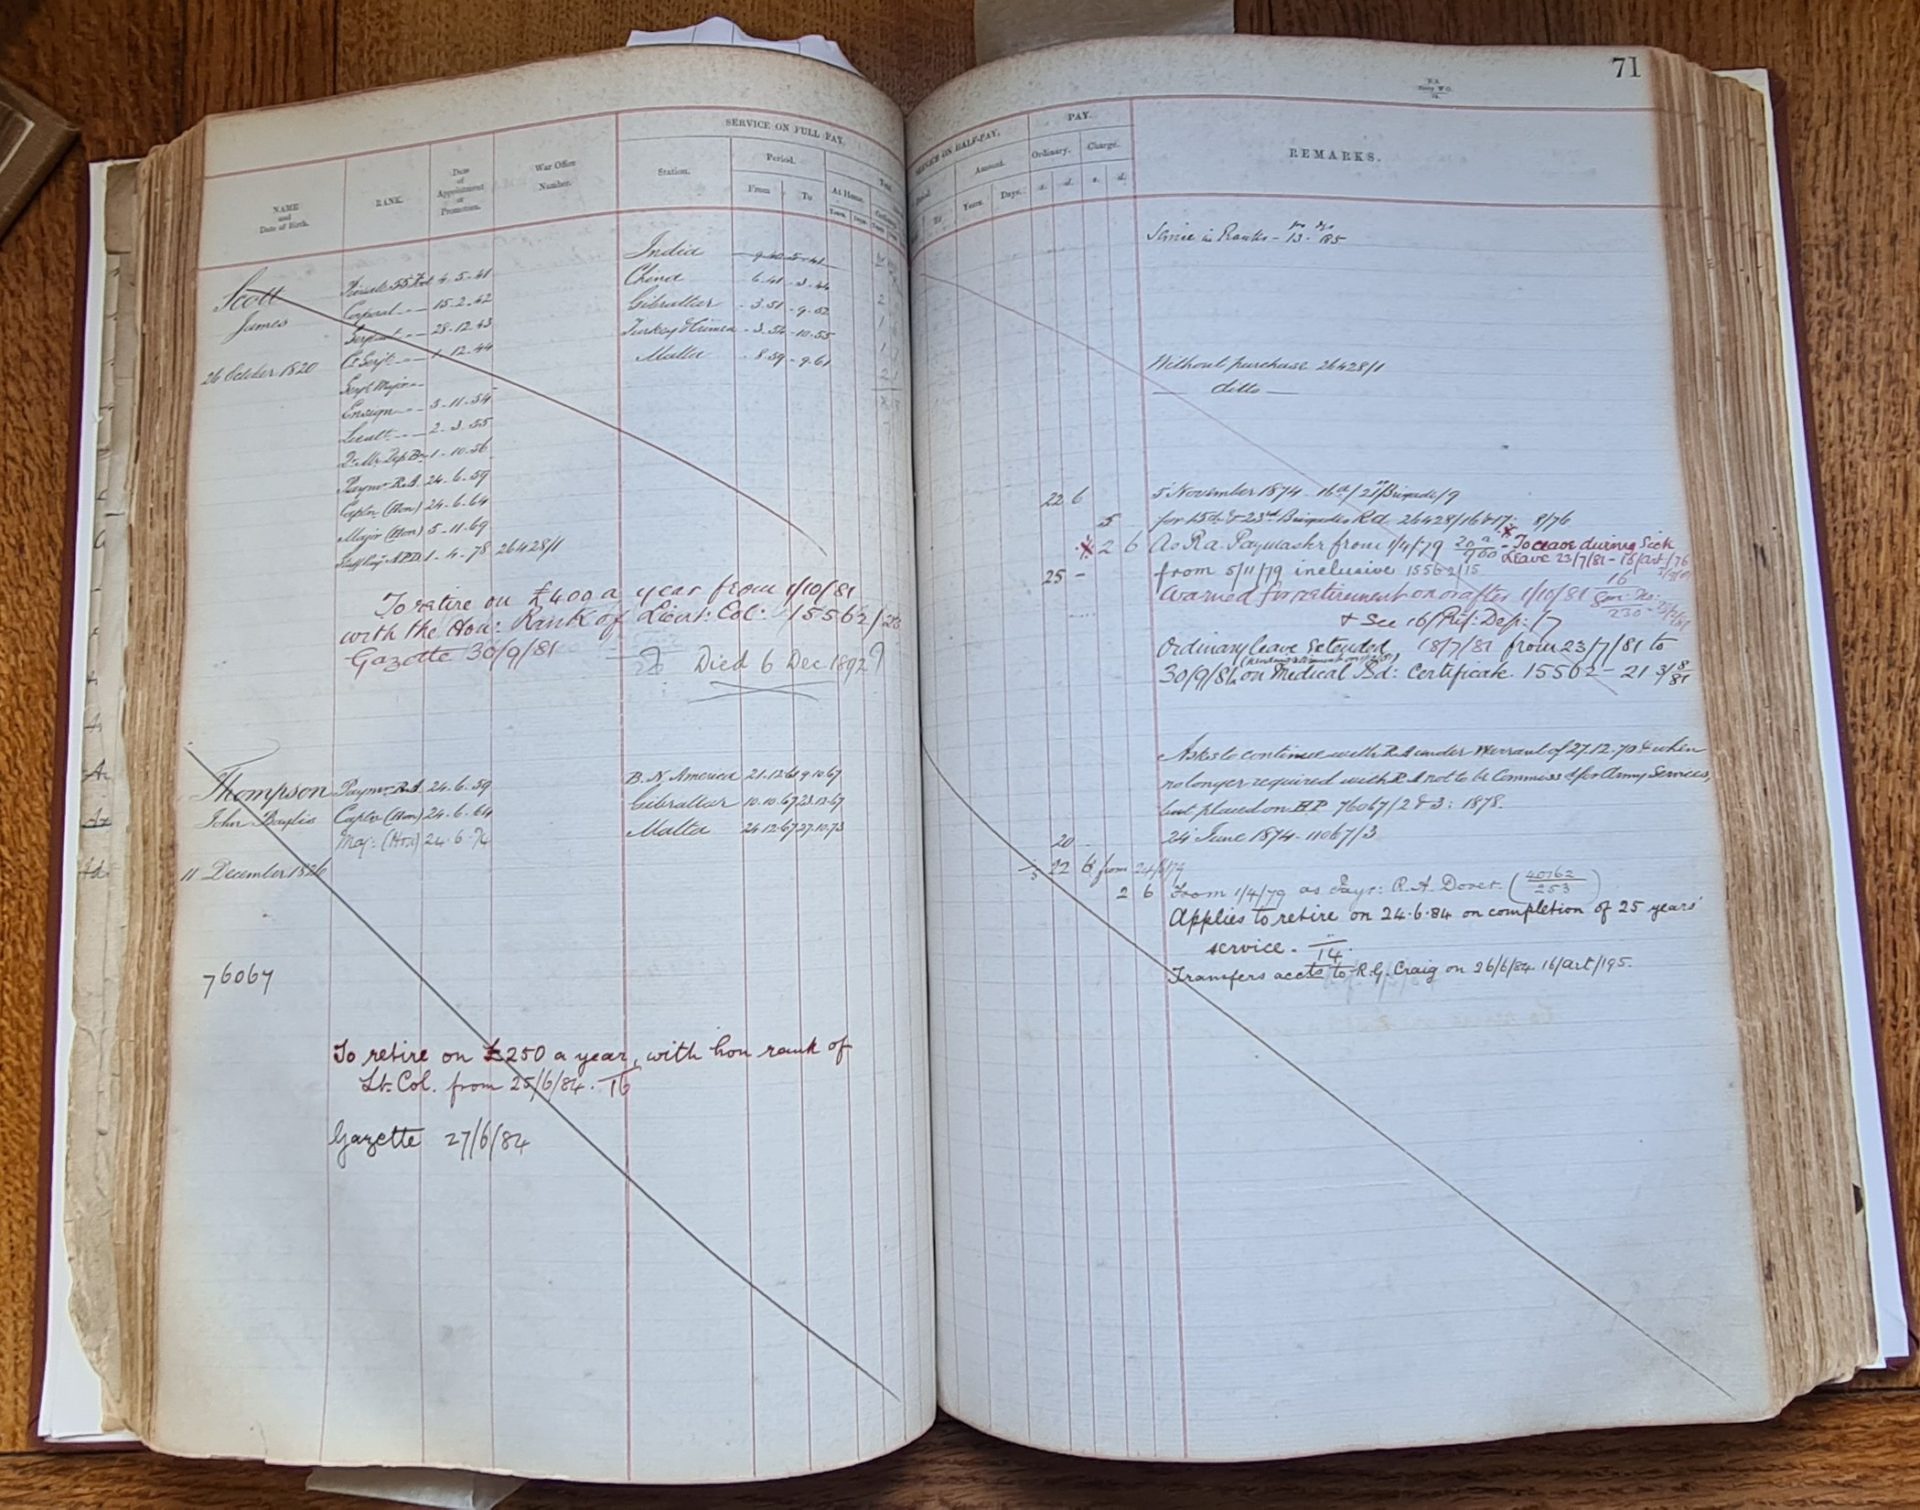 71
SERVICE ON FULL PAY.
NAME
and
Date of Birth.
RANK.
Date
of
Appointment
or
Promotion.
War Office
Number.
Station.
Period.
From
To
At Home.
Years. Days.
Scott
James
26 October 1820
4. 5. 41
Corporal 15. 2. 42
Serjeant 28. 12. 43
Cr. Serjt. 1. 12. 44
Serjt. Major
Ensign 5. 11. 54
Lieutt. 2. 3. 55
1. 10. 56
Paymr. R.A. 24. 6. 59
Captn. (Hon) 24. 6. 64
Major (Hon) 5. 11. 69
Staff Payr. A.P.D. 1. 4. 78 26428/1
India
China 6. 41 - 3. 44
Gibraltar 3. 51 - 9. 52
Turkey & Crimea 3. 54 - 10. 55
Malta 8. 59 - 9. 61
To retire on £400 a year from 1/10/81
with the Hon: Rank of Lieut: Col: 15562/23
Gazette 30/9/81
Died 6 Dec 1892
Thompson
John Baylis
11 December 1826
76067
Paymr. R.A. 24. 6. 59
Captn (Hon) 24. 6. 64
Maj: (Hon) 24. 6. 74
B. N. America 21. 12. 61 9. 10. 67
Gibraltar 10. 10. 67 23. 12. 67
Malta 24. 12. 67 27. 10. 73
To retire on £250 a year, with hon rank of
Lt. Col. from 25/6/84. 16
Gazette 27/6/84
SERVICE ON HALF-PAY.
To
Amount.
Years. Days.
PAY.
Ordinary. Charge.
s. d. s. d.
REMARKS.
Service in Ranks - 13. 185
Without purchase 26428/1
ditto
22 6 5 November 1874 - 16a/21st Brigade/9
5 for 15th & 23rd Brigades R.A. 26428/16&17. 8/76
2 6 As R.A. Paymaster from 1/4/79 - To cease during Sick
Leave 23/7/81 - 16/Art/76
25 - from 5/11/79 inclusive 15562/15
Warned for retirement on or after 1/10/81 16 Gen: No: 230
& See 16/Ret: Dep: /7
Ordinary leave Extended 18/7/81 from 23/7/81 to
30/9/81 on Medical Bd: Certificate 15562 - 21 3/8/81
Asks to continue with R.A under Warrant of 27.12.70 & when
no longer required with R.A not to be Commissd for Army Services,
but placed on H.P. 76067/2 & 3: 1878.
20 24 June 1874 - 11067/3
22 6 from 24/6/79
2 6 From 1/4/79 as Payr: R.A. Dover. (40762/253)
Applies to retire on 24.6.84 on completion of 25 years'
service. 14
Transfers accts to R.G. Craig on 26/6/84. 16/Art/195.